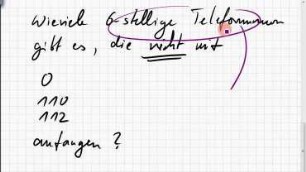 Wieviele 6-stellige Telefonnummern
gibt es, die nicht mit
0
110
112
anfangen?